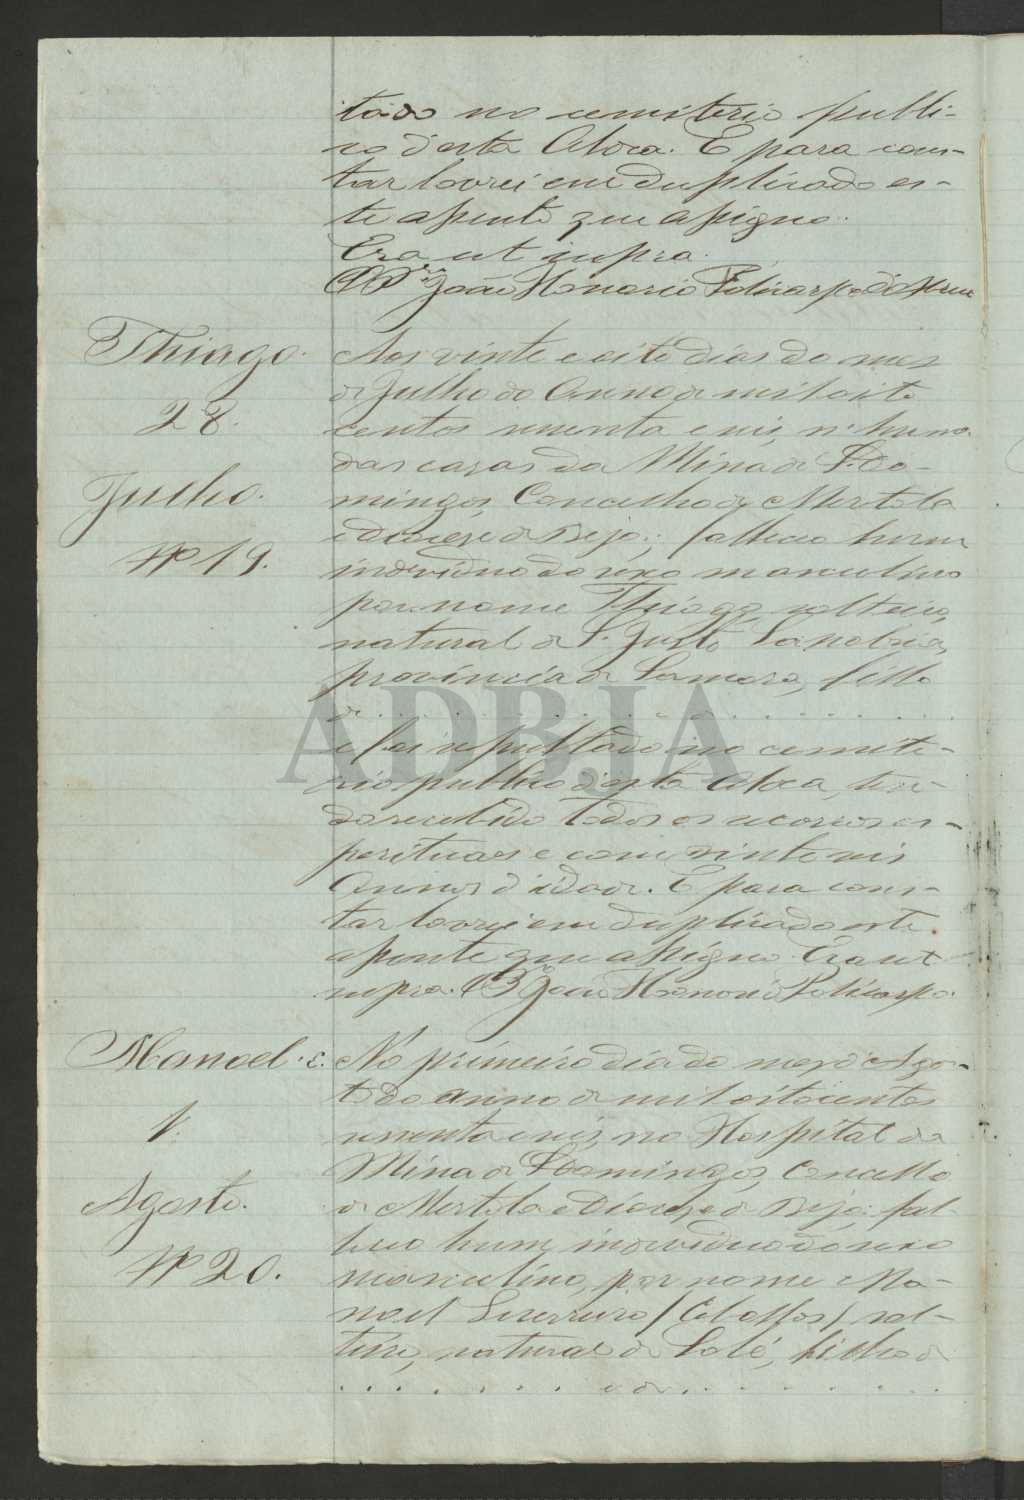 tado no cemiterio publi-
co d'esta Aldea. E para cons-
tar lavrei em duplicado es-
te assento que assigno.
Era ut supra.
João Honorio Policarpo
Thiago.
28.
Julho.
Nº 19.
Aos vinte e oito dias do mez
de Julho do Anno de mil oito
centos sessenta e seis, n'huma
das cazas da Mina de S. Do-
mingos, Concelho de Mertola
e diocese de Beja; falleceo hum
individuo do sexo masculino
por nome Thiago, solteiro,
natural de S. Justo Sanabria,
provincia de Samora, filho
de . . . . . . . . e de . . . . . . . .
e foi sepultado no cemite-
rio publico d'esta Aldea, ten-
do recebido todos os socorros es-
perituaes e com vinte seis
Annos d'idade. E para cons-
tar lavrei em duplicado este
assento que assigno. Era ut
supra. João Honorio Policarpo.
Manoel. S.
1.
Agosto.
Nº 20.
No primeiro dia do mez d'Agos-
to do anno de mil oitocentos
sessenta e seis, no Hospital da
Mina de S. Domingos, Concelho
de Mertola e Diocese de Beja: fal-
leceo hum individuo do sexo
masculino, por nome Ma-
noel Guerreiro / / sol-
teiro, natural de Solé, filho de
. . . . . . . . e de . . . . . . . .
ADBJA